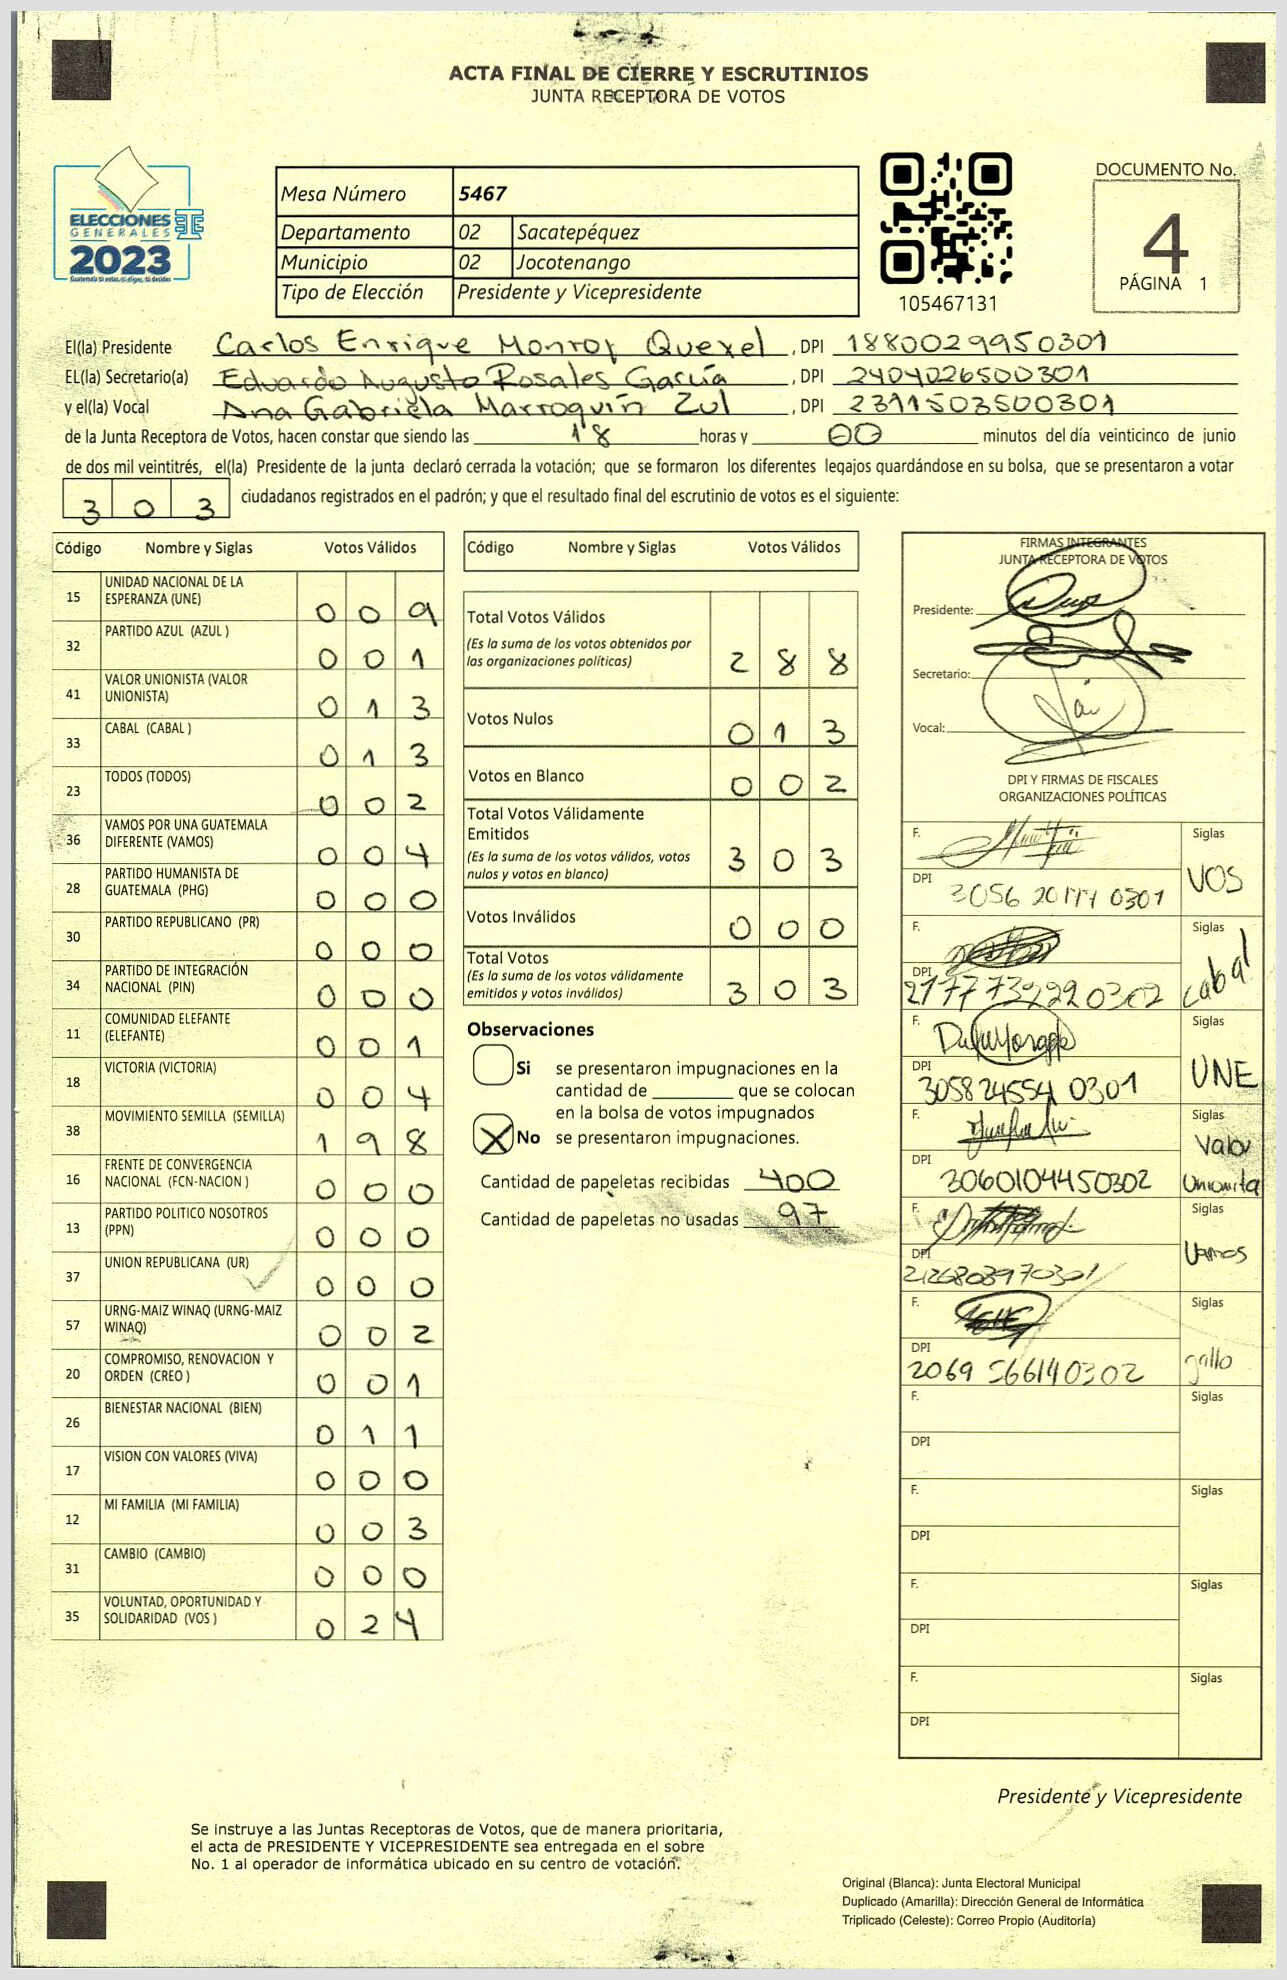 ACTA FINAL DE CIERRE Y ESCRUTINIOS
JUNTA RECEPTORA DE VOTOS
ELECCIONES
GENERALES
2023
Mesa Número 5467
Departamento 02 Sacatepéquez
Municipio 02 Jocotenango
Tipo de Elección Presidente y Vicepresidente
105467131
DOCUMENTO No.
4
PÁGINA 1
El(la) Presidente Carlos Enrique Monroy Quexel, DPI 1880029950301
EL(la) Secretario(a) Eduardo Augusto Rosales García, DPI 2404026500301
y el(la) Vocal Ana Gabriela Marroquín Zul, DPI 2391503500301
de la Junta Receptora de Votos, hacen constar que siendo las 18 horas y 00 minutos del día veinticinco de junio
de dos mil veintitrés, el(la) Presidente de la junta declaró cerrada la votación; que se formaron los diferentes legajos guardándose en su bolsa, que se presentaron a votar
303 ciudadanos registrados en el padrón; y que el resultado final del escrutinio de votos es el siguiente:
Código Nombre y Siglas Votos Válidos
15 UNIDAD NACIONAL DE LA ESPERANZA (UNE) 009
32 PARTIDO AZUL (AZUL ) 001
41 VALOR UNIONISTA (VALOR UNIONISTA) 013
33 CABAL (CABAL ) 013
23 TODOS (TODOS) 002
36 VAMOS POR UNA GUATEMALA DIFERENTE (VAMOS) 004
28 PARTIDO HUMANISTA DE GUATEMALA (PHG) 000
30 PARTIDO REPUBLICANO (PR) 000
34 PARTIDO DE INTEGRACIÓN NACIONAL (PIN) 000
11 COMUNIDAD ELEFANTE (ELEFANTE) 001
18 VICTORIA (VICTORIA) 004
38 MOVIMIENTO SEMILLA (SEMILLA) 198
16 FRENTE DE CONVERGENCIA NACIONAL (FCN-NACION ) 000
13 PARTIDO POLITICO NOSOTROS (PPN) 000
37 UNION REPUBLICANA (UR) 000
57 URNG-MAIZ WINAQ (URNG-MAIZ WINAQ) 002
20 COMPROMISO, RENOVACION Y ORDEN (CREO ) 001
26 BIENESTAR NACIONAL (BIEN) 011
17 VISION CON VALORES (VIVA) 000
12 MI FAMILIA (MI FAMILIA) 003
31 CAMBIO (CAMBIO) 000
35 VOLUNTAD, OPORTUNIDAD Y SOLIDARIDAD (VOS ) 024
Código Nombre y Siglas Votos Válidos
Total Votos Válidos 288
(Es la suma de los votos obtenidos por
las organizaciones políticas)
Votos Nulos 013
Votos en Blanco 002
Total Votos Válidamente
Emitidos 303
(Es la suma de los votos válidos, votos
nulos y votos en blanco)
Votos Inválidos 000
Total Votos 303
(Es la suma de los votos válidamente
emitidos y votos inválidos)
Observaciones
Si se presentaron impugnaciones en la
cantidad de ________ que se colocan
en la bolsa de votos impugnados
X No se presentaron impugnaciones.
Cantidad de papeletas recibidas 400
Cantidad de papeletas no usadas 97
FIRMAS INTEGRANTES
JUNTA RECEPTORA DE VOTOS
Presidente:
Secretario:
Vocal:
DPI Y FIRMAS DE FISCALES
ORGANIZACIONES POLÍTICAS
F. Siglas
DPI VOS
F. Siglas
DPI Cabal
F. Siglas
DPI 3058245540301 UNE
F. Siglas
DPI 3060104450302 Valor Unionita
F. Siglas
DPI 2126803970301 Vamos
F. Siglas
DPI 2069566140302 gallo
F. Siglas
DPI
F. Siglas
DPI
F. Siglas
DPI
F. Siglas
DPI
Presidente y Vicepresidente
Se instruye a las Juntas Receptoras de Votos, que de manera prioritaria,
el acta de PRESIDENTE Y VICEPRESIDENTE sea entregada en el sobre
No. 1 al operador de informática ubicado en su centro de votación.
Original (Blanca): Junta Electoral Municipal
Duplicado (Amarilla): Dirección General de Informática
Triplicado (Celeste): Correo Propio (Auditoría)